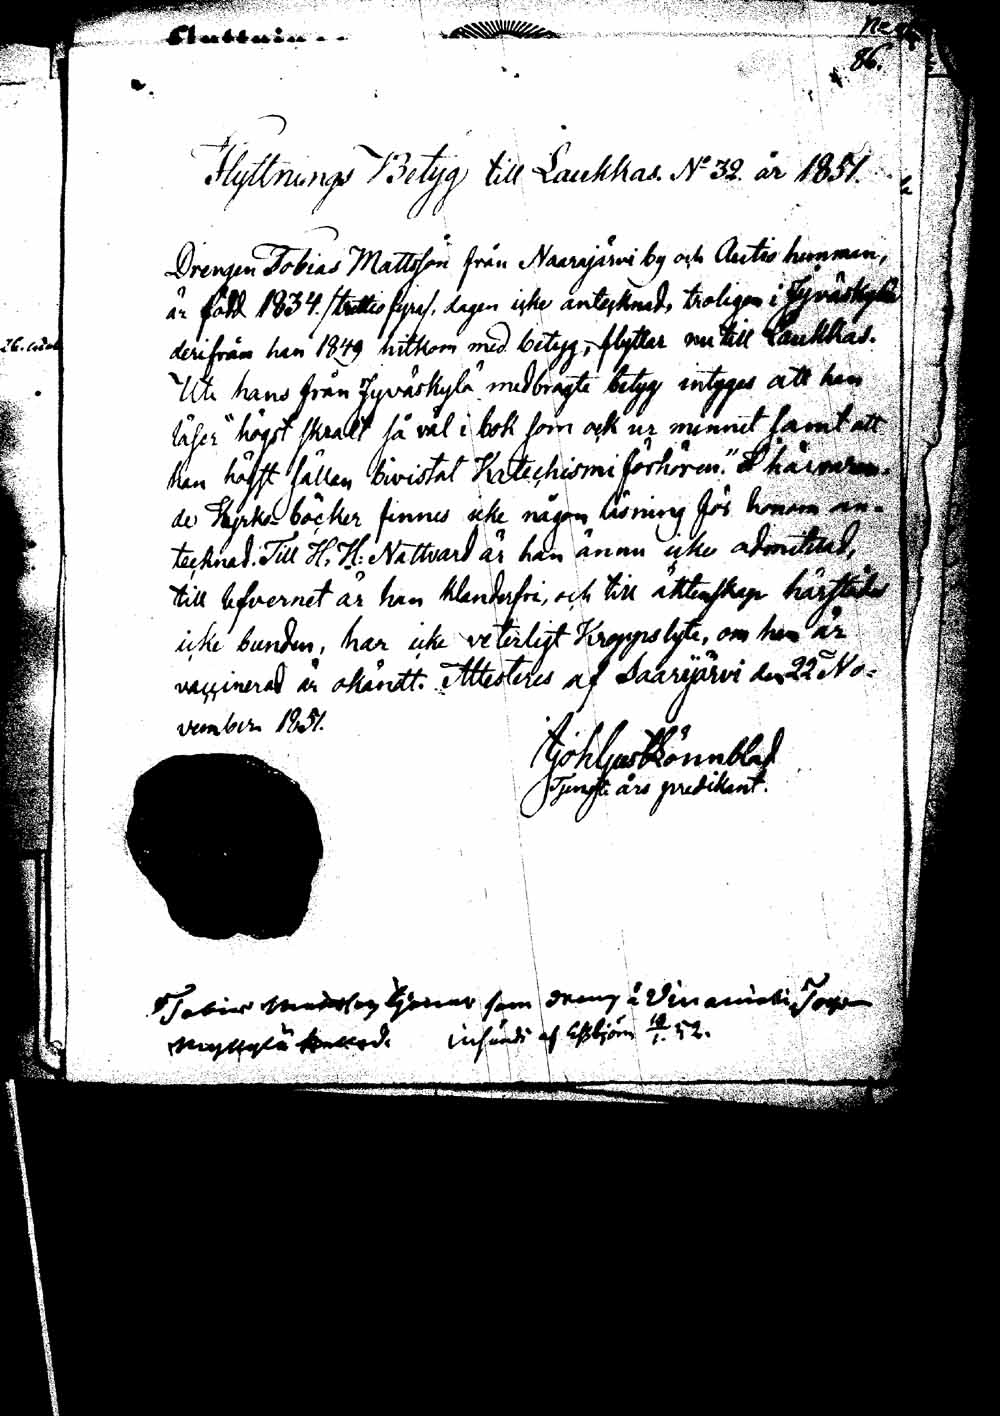 86.
Flyttnings Betyg till Laukkas. No 32 år 1851.
Drengen Tobias Mattsson från Naarajärvi by och Autio hemman,
är född 1834. /trettiofyra/. dagen icke antecknad, troligen i Jyväskylä
derifrån han 1849 hitkom med betyg, flyttar nu till Laukkas.
Uti hans från Jyväskylä medbragte betyg intygas att han
läser "högst skralt så väl i bok som ock ur minnet samt att
han högst sällan bivistat Katechismi förhören." I härvaran-
de Kyrko-böcker finnes icke någon läsning för honom an-
tecknad. Till H. H. Nattvard är han ännu icke admitterad,
till lefvernet är han klanderfri, och till äktenskap härstädes
icke bunden, har icke veterligt Kroppslyte, om han är
vaccinerad är okändt. Attesteres af Saarijärvi den 22 No-
vember 1851.
Rönnblad
Tjenst. års predikant.
Tobias som dreng å
af 52.